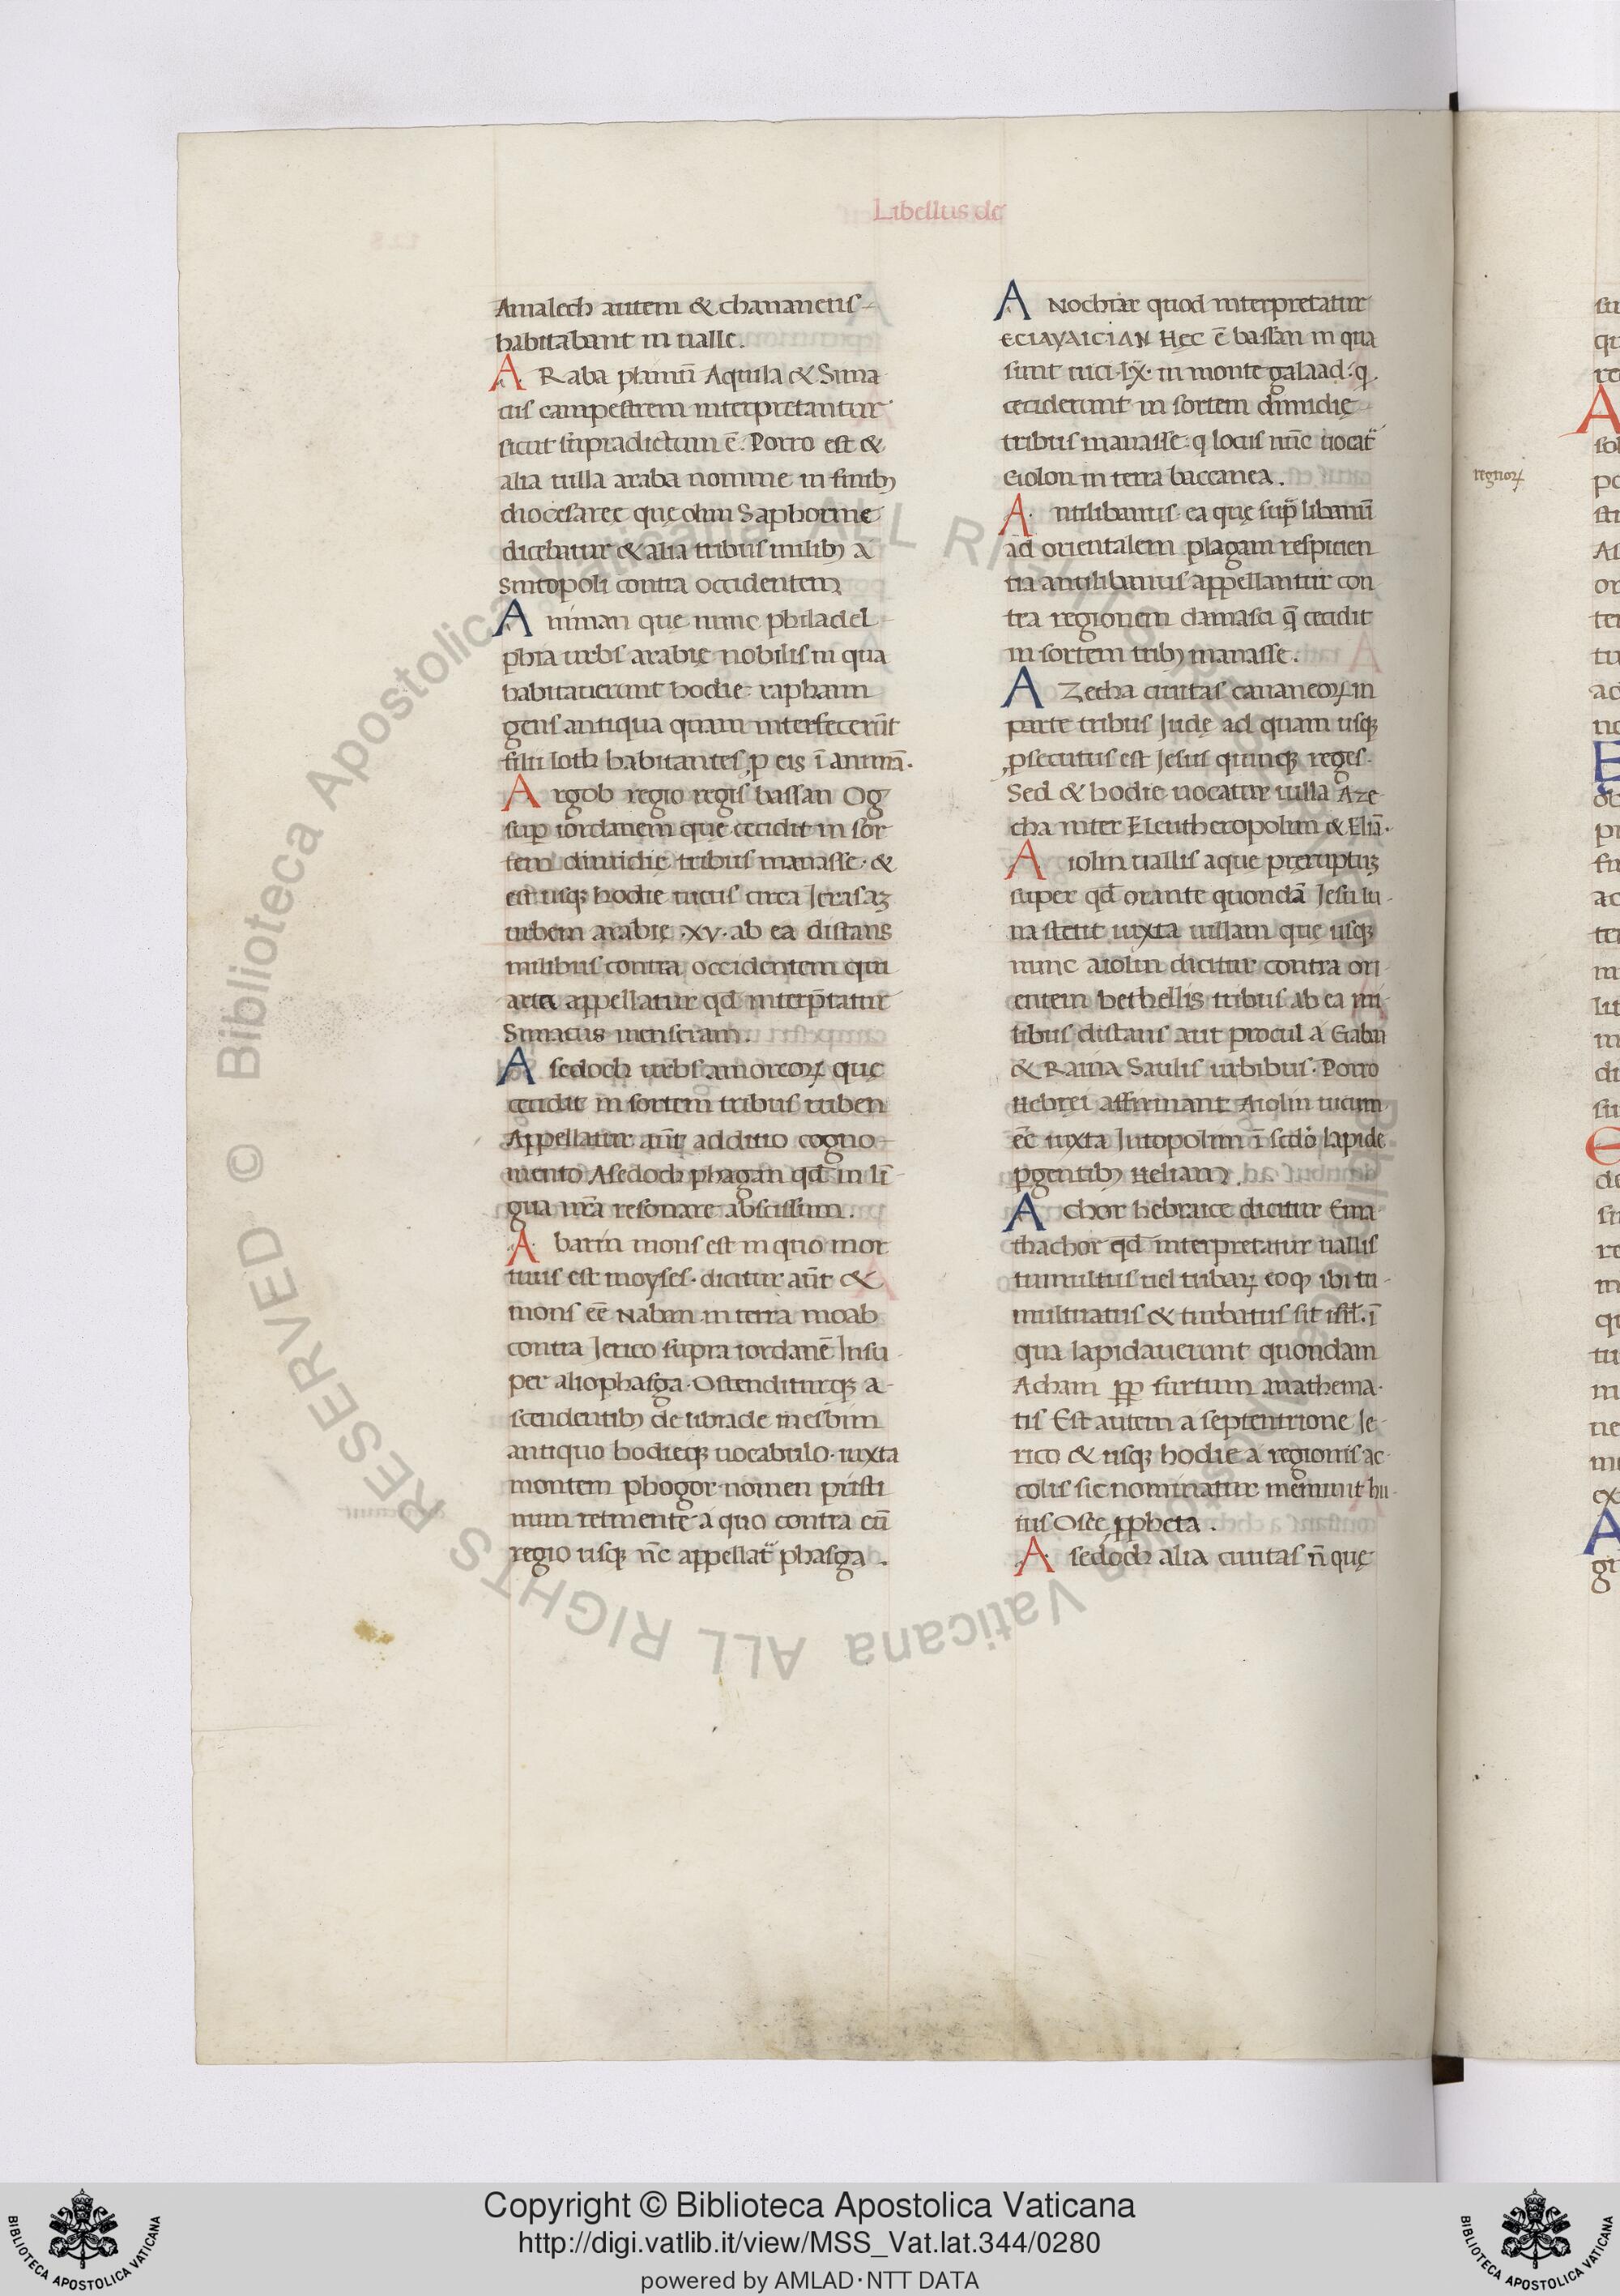 Libellus de
Amalech autem & chananeus
habitabant in ualle.
A Raba planitiē Aquila & Sima
cus campestrem interpretantur
sicut supradictum ē. Porro est &
alia uilla araba nomine in finibꝫ
diocesareę que olim Saphorine
dicebatur & alia tribus milibꝫ a
Smtopoli contra occidentem
A mman quę nunc philadel
phia urbs arabię nobilis in qua
habitauerunt hodie raphaim
gens antiqua quam interfecerūt
filii loth habitantes ꝓ eis ī ammā.
A rgob regio regis bassan Og
sup iordanem que cecidit in sor
tem dimidię tribus manasse. &
est usqꝫ hodie uicus circa Jerasaꝫ
urbem arabię .xv. ab ea distans
milibus contra occidentem qui
arta appellatur qđ interp̄tatur
Simacus mensuram.
A sedoch urbs amoreoꝝ quę
cecidit in sortem tribus ruben
Appellatur aūt additio cogno
mento Asedoch phagan qđ in lī
gua nr̄a resonare abscissum.
A barin mons est in quo mor
tuus est moyses. dicitur aūt &
mons eē Naban in terra moab
contra Jerico supra iordanē Insu
per alio phasga. Ostenditurqꝫ a
scendentibꝫ de librade in esbim
antiquo hodieqꝫ uocabulo. iuxta
montem phogor nomen pristi
num retinente a quo contra eū
regio usqꝫ nc̄ appellat̄ phasga.
A Nochiar quod interpretatur
ECIAYAICIAN Hęc ē bassan in qua
sunt uici .lx. in monte galaad. q
ceciderunt in sortem dimidię
tribus manasse. q locus nūc uocat̄
Giolon in terra baccanea.
A ntilibanus. ea quę sup̄ libanū
ad orientalem plagam respicien
tia antilibanus appellantur con
tra regionem damasci q̄ cecidit
in sortem tribꝫ manasse.
A Zecha ciuitas cananeoꝝ in
parte tribus Judę ad quam usqꝫ
ꝓsecutus est Jesus quinqꝫ reges.
Sed & hodie uocatur uilla Aze
cha inter Eleutheropolim & Eliā.
A iolin uallis aque pręruptuꝫ
super qđ orante quondā Jesu lu
na stetit iuxta uillam quę usqꝫ
nunc aiolin dicitur contra ori
entem bethellis tribus ab ea mi
libus distans aut procul a Gabii
& Rama Saulis urbibus. Porro
Hebręi affirmant Aiolin uicum
eē iuxta Jutopolim ī scdō lapide
pgentibꝫ Heliam.
A chor hebraice dicitur Ema
thachor qđ interpretatur uallis
tumultus uel tubaꝝ eoqꝫ ibi tu
multuatus & turbatus sit isrl̄. ī
qua lapidauerunt quondam
Acham ꝓp furtum anathema
tis Est autem a septentrione Je
rico & usqꝫ hodie a regionis ac
colis sic nominatur meminit hu
ius Osee ꝓpheta.
A sedoch alia ciuitas n̄ quę
regnoꝝ
Copyright © Biblioteca Apostolica Vaticana
http://digi.vatlib.it/view/MSS_Vat.lat.344/0280
powered by AMLAD·NTT DATA
BIBLIOTECA APOSTOLICA VATICANA
BIBLIOTECA APOSTOLICA VATICANA
© Biblioteca Apostolica Vaticana ALL RIGHTS RESERVED